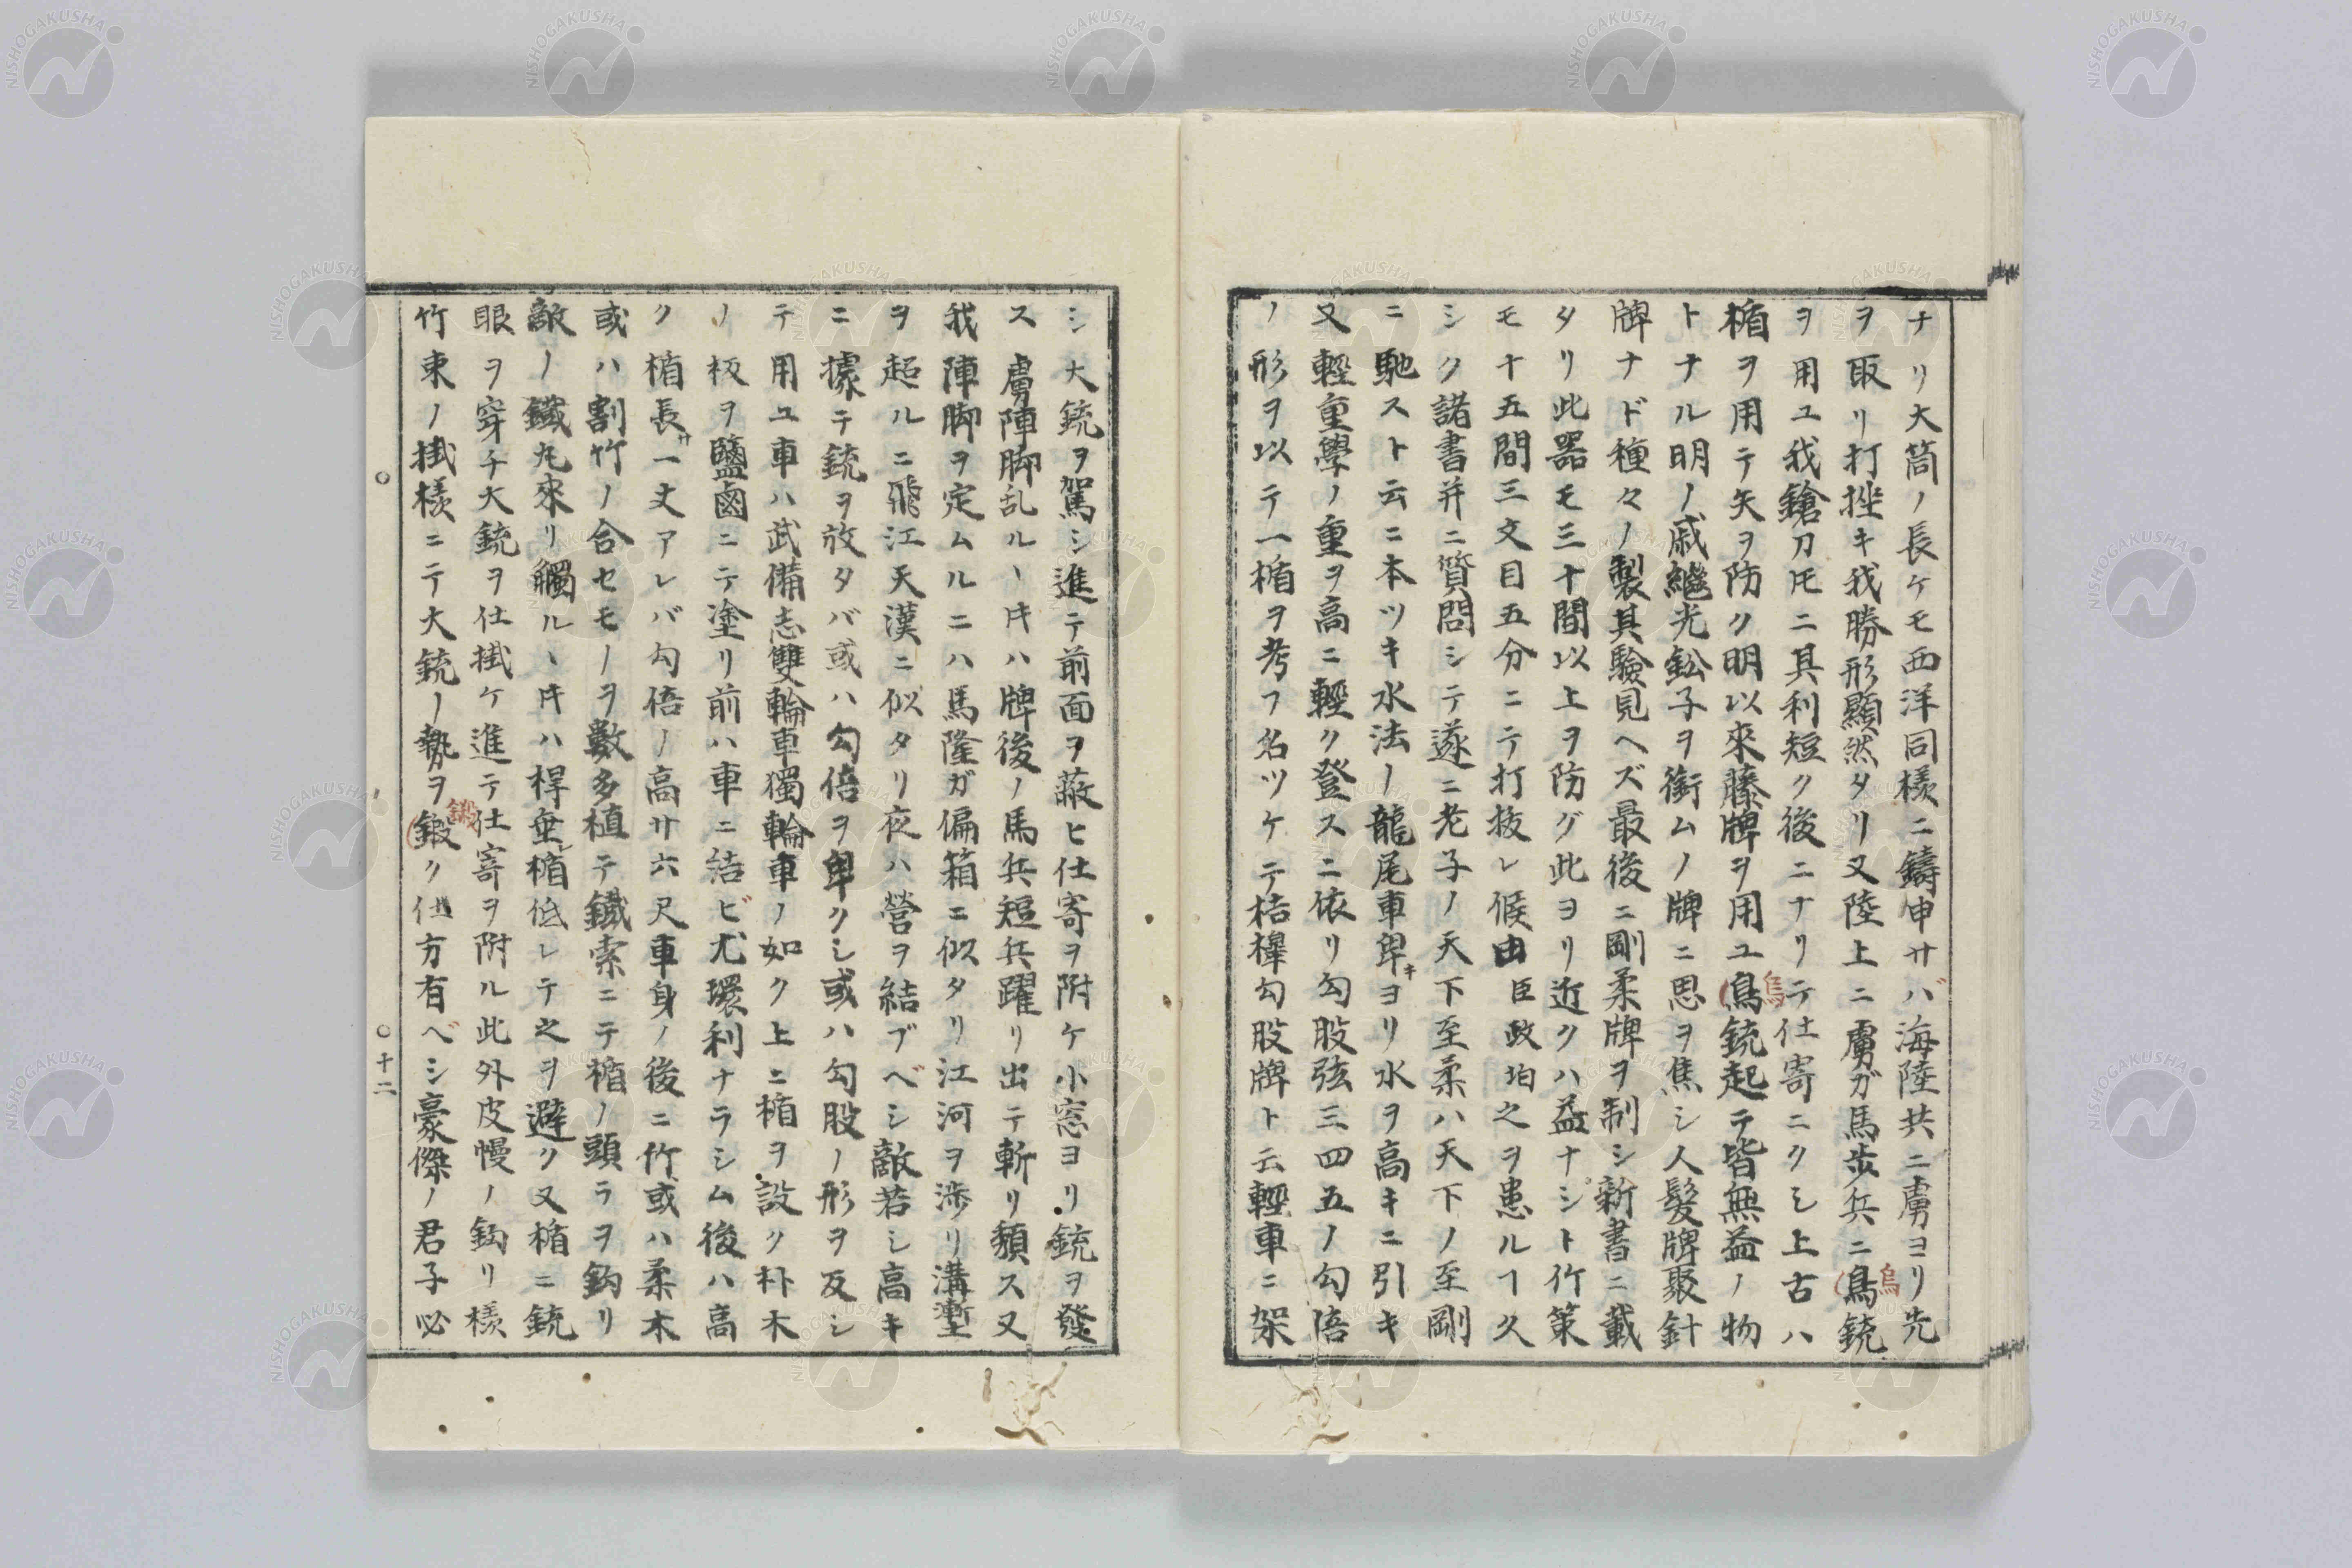 ナリ大筒ノ長ケモ西洋同様ニ鑄申サバ海陸共ニ虜ヨリ先
ヲ取リ打挫キ我勝形顯然タリ又陸上ニ虜ガ馬歩兵ニ鳥銃
烏
ヲ用ユ我鎗刀㕝ニ其利短ク後ニナリテ仕寄ニクシ上古ハ
楯ヲ用テ矢ヲ防ク明以來藤牌ヲ用ユ鳥銃起テ皆無益ノ物
烏
トナル明ノ戚繼光鈆子ヲ銜ムノ牌ニ思ヲ焦シ人髮牌聚針
牌ナド種々ノ製其驗見ヘズ最後ニ剛柔牌ヲ制シ新書ニ載
タリ此器モ三十間以上ヲ防グ此ヨリ近クハ益ナシト竹策
モ十五間三文目五分ニテ打抜レ候由臣政珀之ヲ患ルヿ久
シク諸書并ニ質問シテ遂ニ老子ノ天下至柔ハ天下ノ至剛
ニ馳スト云ニ本ツキ水法ノ龍尾車卑キヨリ水ヲ高キニ引キ
又輕重學ノ重ヲ高ニ輕ク登スニ依リ勾股弦三四五ノ勾倍
ノ形ヲ以テ一楯ヲ考フ名ツケテ桔槹勾股牌ト云輕車ニ架
シ大銃ヲ駕シ進テ前面ヲ蔽ヒ仕寄ヲ附ケ小窓ヨリ銃ヲ發
ス虜陣脚乱ルヽ㕝ハ牌後ノ馬兵短兵躍リ出テ斬リ頽ス又
我陣脚ヲ定ムルニハ馬隆ガ偏箱ニ似タリ江河ヲ渉リ溝塹
ヲ超ルニ飛江天漢ニ似タリ夜ハ營ヲ結ブベシ敵若シ高キ
ニ據テ銃ヲ放タバ或ハ勾倍ヲ卑クシ或ハ勾股ノ形ヲ反シ
テ用ユ車ハ武備志雙輪車獨輪車ノ如ク上ニ楯ヲ設ク朴木
ノ板ヲ鹽鹵ニテ塗リ前ハ車ニ結ビ尤環利ナラシム後ハ高
ク楯長サ一丈アレバ勾倍ノ高サ六尺車身ノ後ニ竹或ハ柔木
或ハ割竹ノ合セモノヲ數多植テ鐵索ニテ楯ノ頭ラヲ鈎リ
敵ノ鐵丸來リ觸ルヽ㕝ハ桿垂レ楯低レテ之ヲ避ク又楯ニ銃
眼ヲ穿チ大銃ヲ仕掛ケ進テ仕寄ヲ附ル此外皮幔ノ鈎リ樣
竹束ノ掛樣ニテ大銃ノ勢ヲ鍛ク仕方有ベシ豪傑ノ君子必
十二